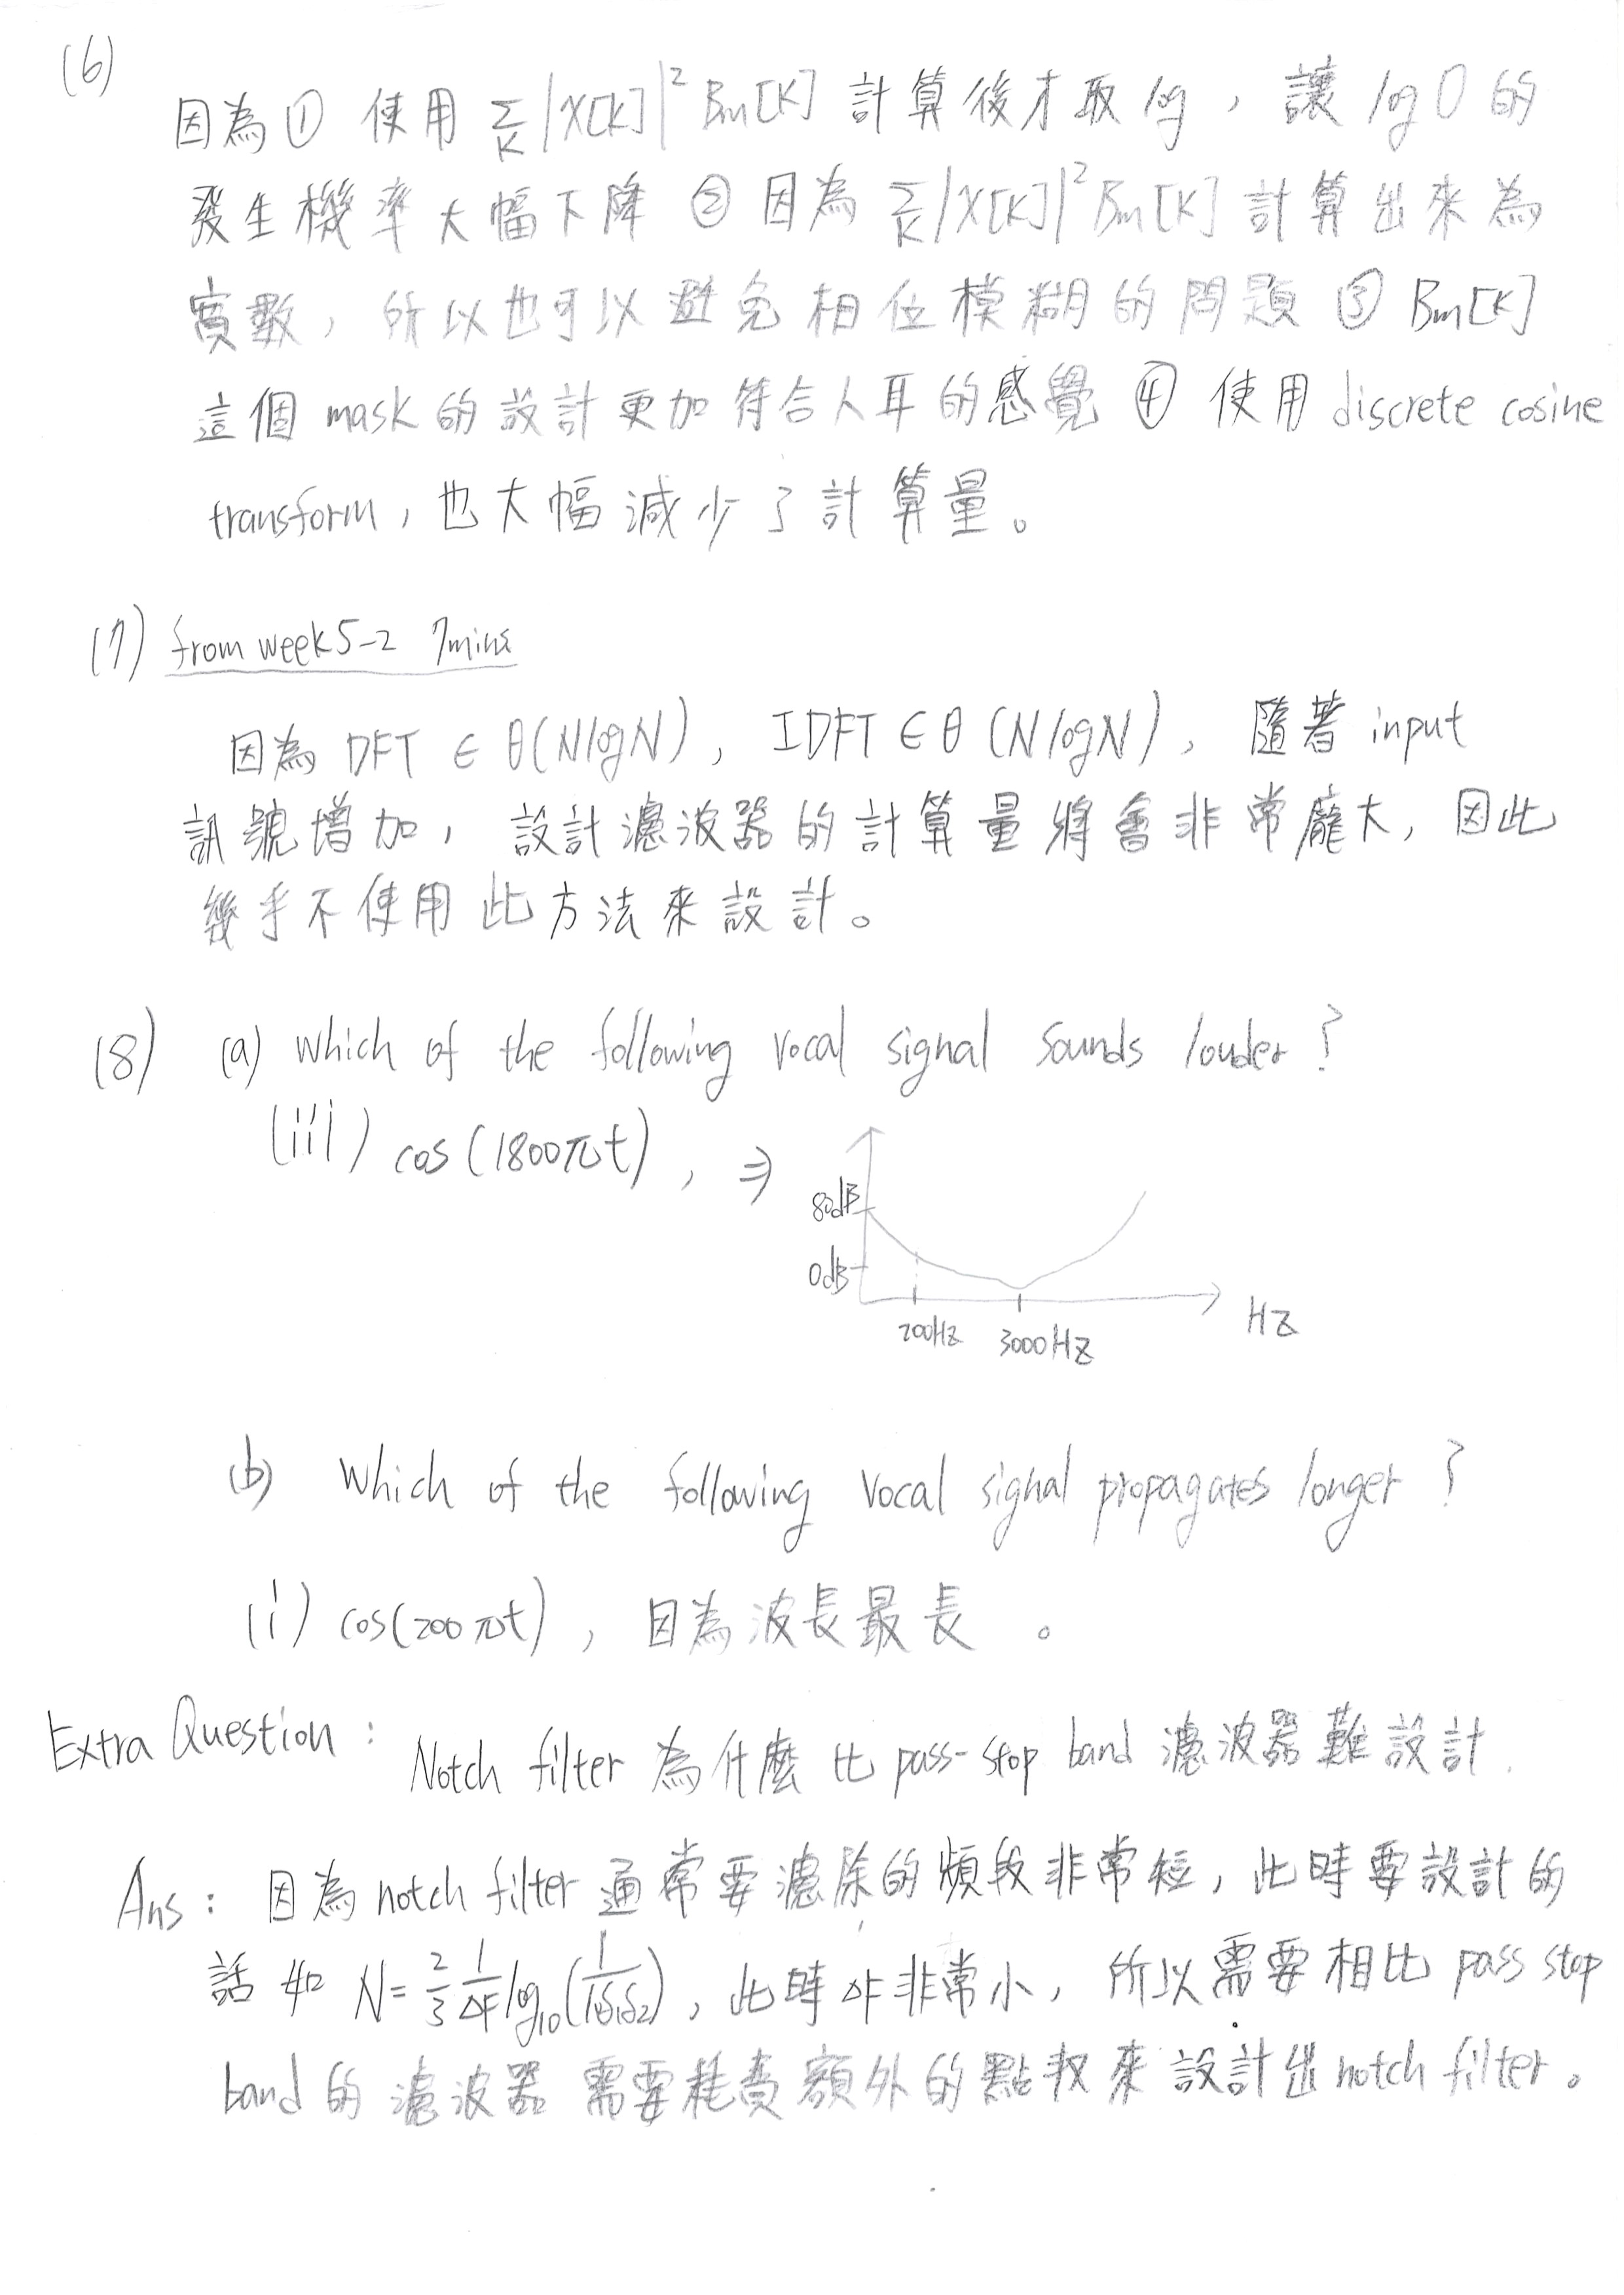 (6)
因為 ① 使用 Σ_K |X[K]|² Bm[K] 計算後才取 log, 讓 log 0 的
發生機率大幅下降 ② 因為 Σ_K |X[K]|² Bm[K] 計算出來為
實數, 所以也可以避免相位模糊的問題 ③ Bm[K]
這個 mask 的設計更加符合人耳的感覺 ④ 使用 discrete cosine
transform, 也大幅減少了計算量。
(7) from week5-2 7mins
因為 DFT ∈ θ(NlogN), IDFT ∈ θ(NlogN), 隨著 input
訊號增加, 設計濾波器的計算量將會非常龐大, 因此
幾乎不使用此方法來設計。
(8) (a) Which of the following vocal signal sounds louder?
(iii) cos(1800πt), ⇒
80dB
0dB
200Hz 3000Hz Hz
(b) Which of the following vocal signal propagates longer?
(i) cos(200πt), 因為波長最長。
Extra Question: Notch filter 為什麼比 pass-stop band 濾波器難設計.
Ans: 因為 notch filter 通常要濾除的頻段非常短, 此時要設計的
話如 N= 2/3 1/ΔF log₁₀(1/10δ₁δ₂), 此時 ΔF 非常小, 所以需要相比 pass stop
band 的濾波器需要耗費額外的點數來設計出 notch filter。